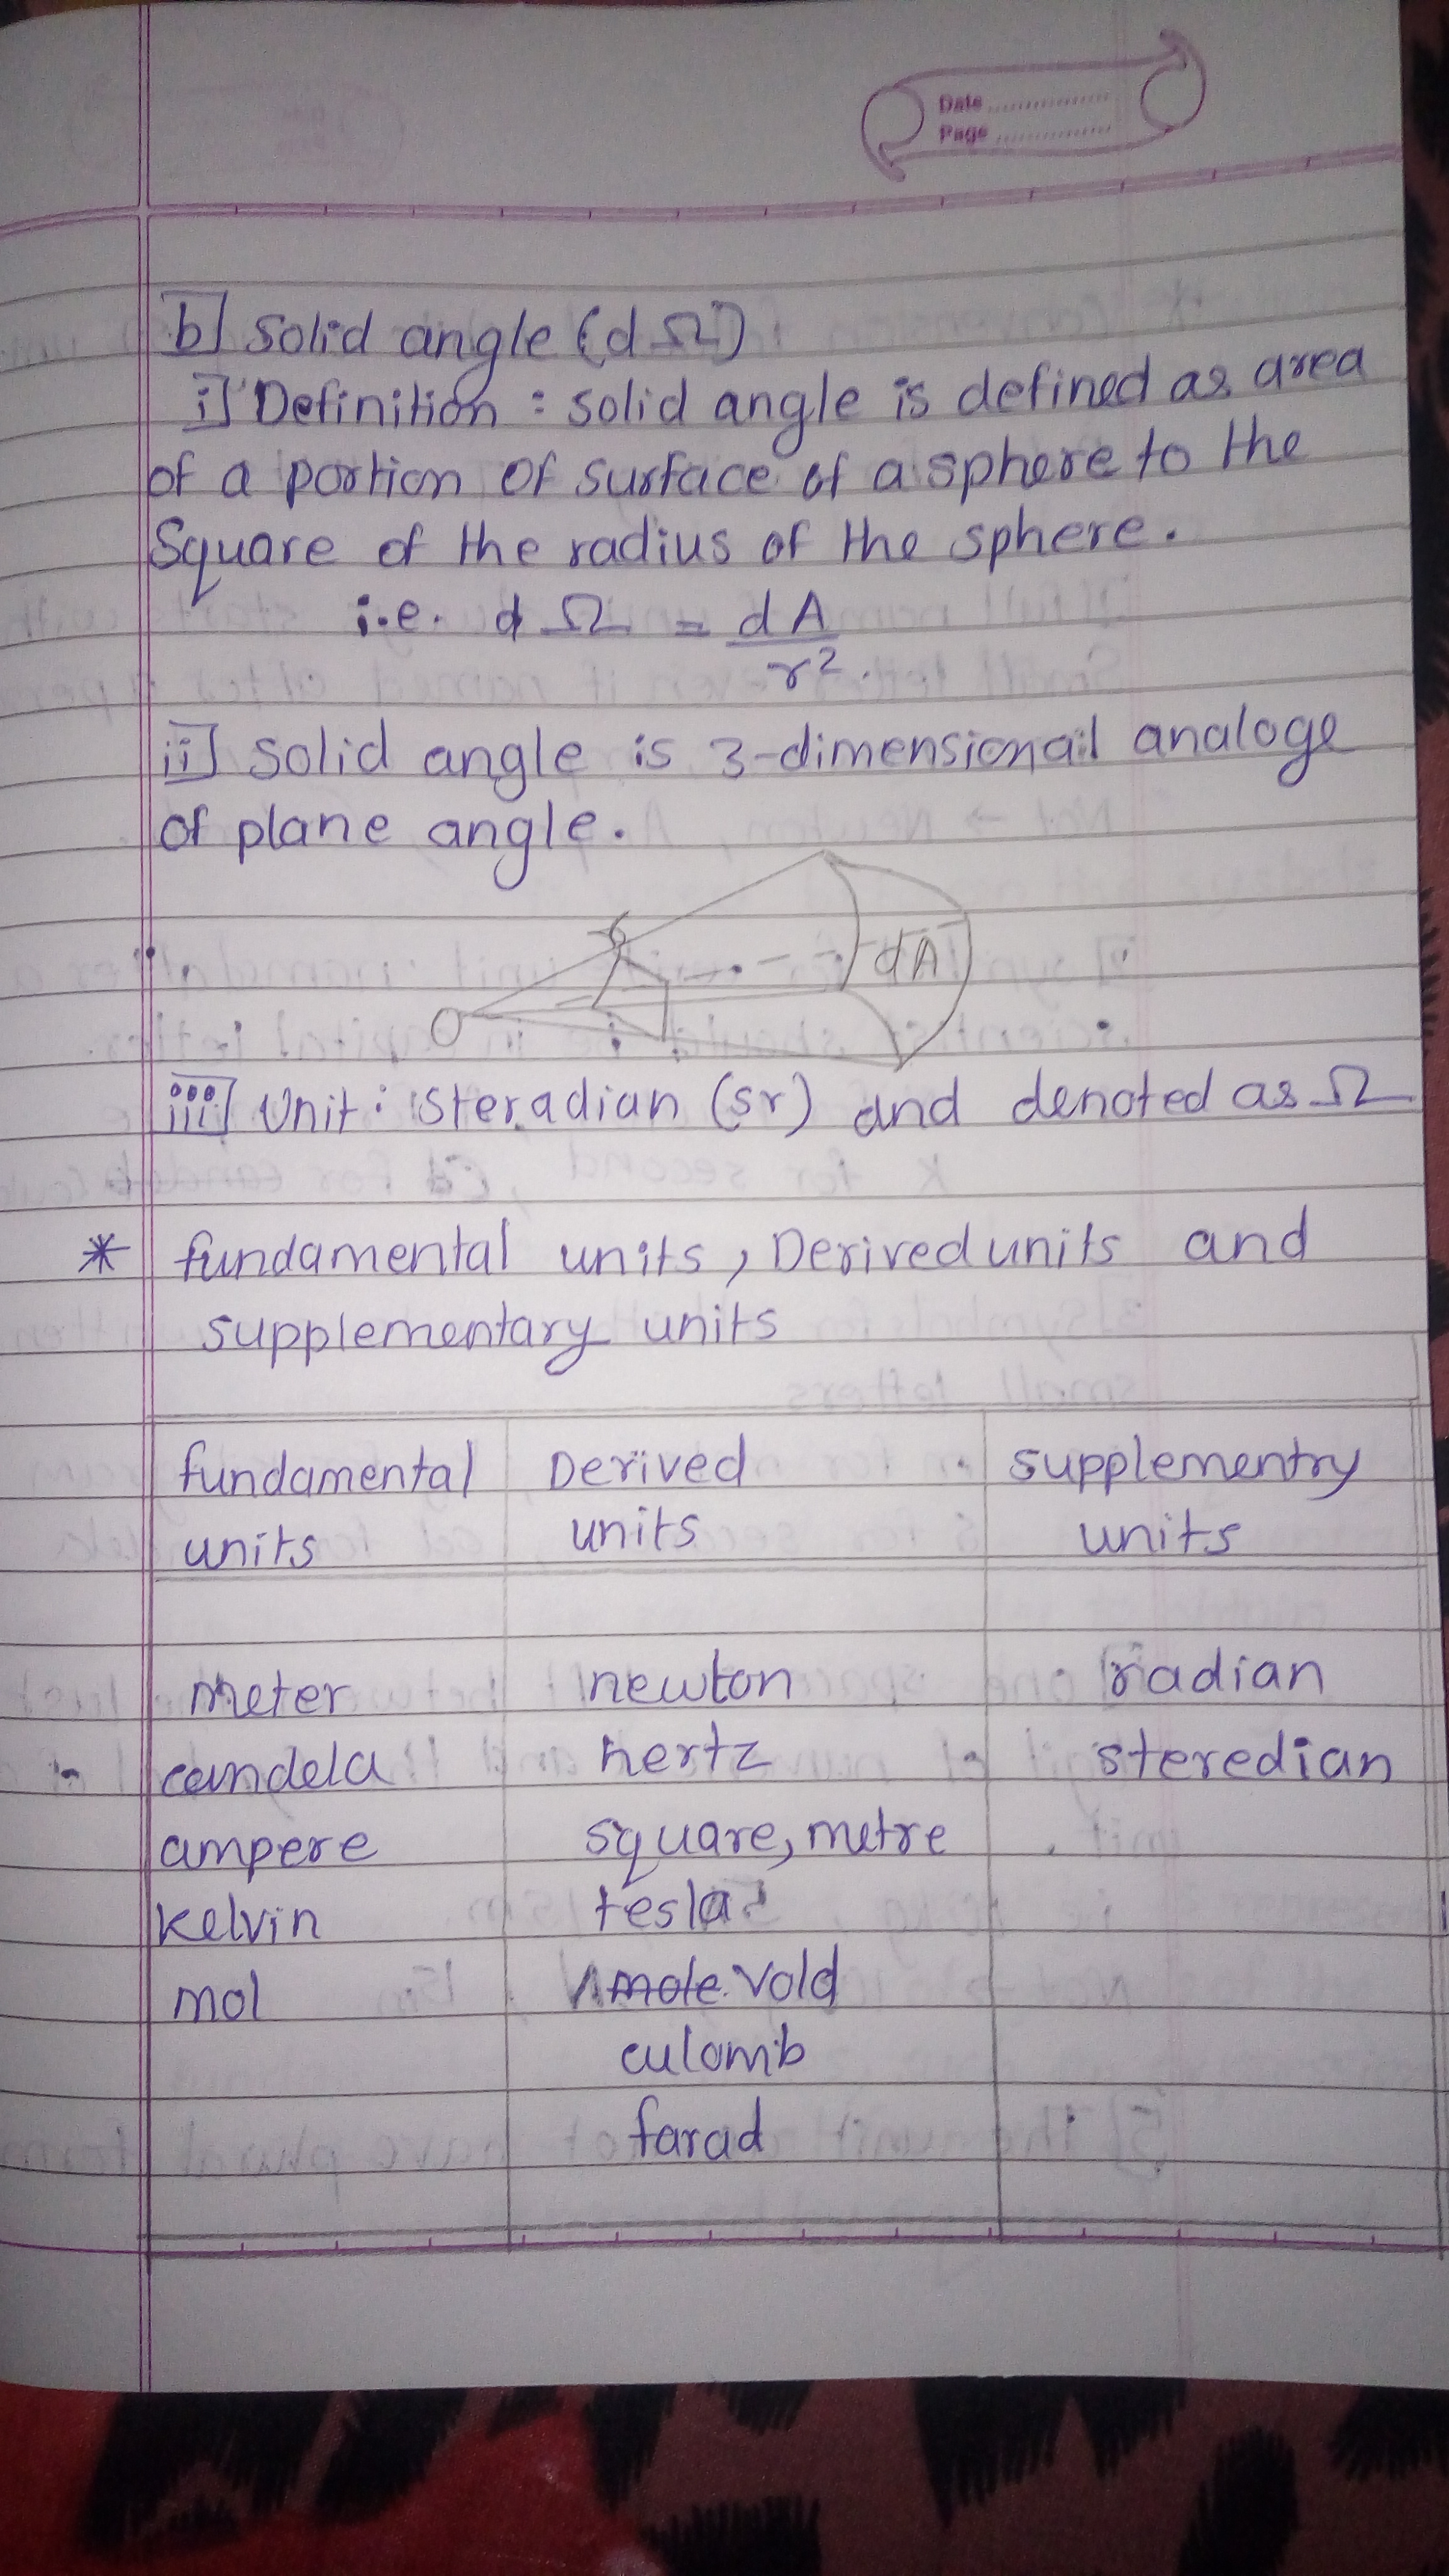 Date
Page
b] Solid angle (dΩ)
i] Definition : solid angle is defined as area
of a portion of surface of a sphere to the
Square of the radius of the sphere.
i.e. dΩ = dA
r².
ii] Solid angle is 3-dimensionail analoge
of plane angle.
dA
O
iii] Unit : Steradian (sr) and denoted as Ω
* fundamental units, Derived units and
supplementary units
fundamental Derived supplementry
units units units
meter newton radian
candela hertz steredian
ampere square, metre
kelvin tesla
mol mole Vold
culomb
farad